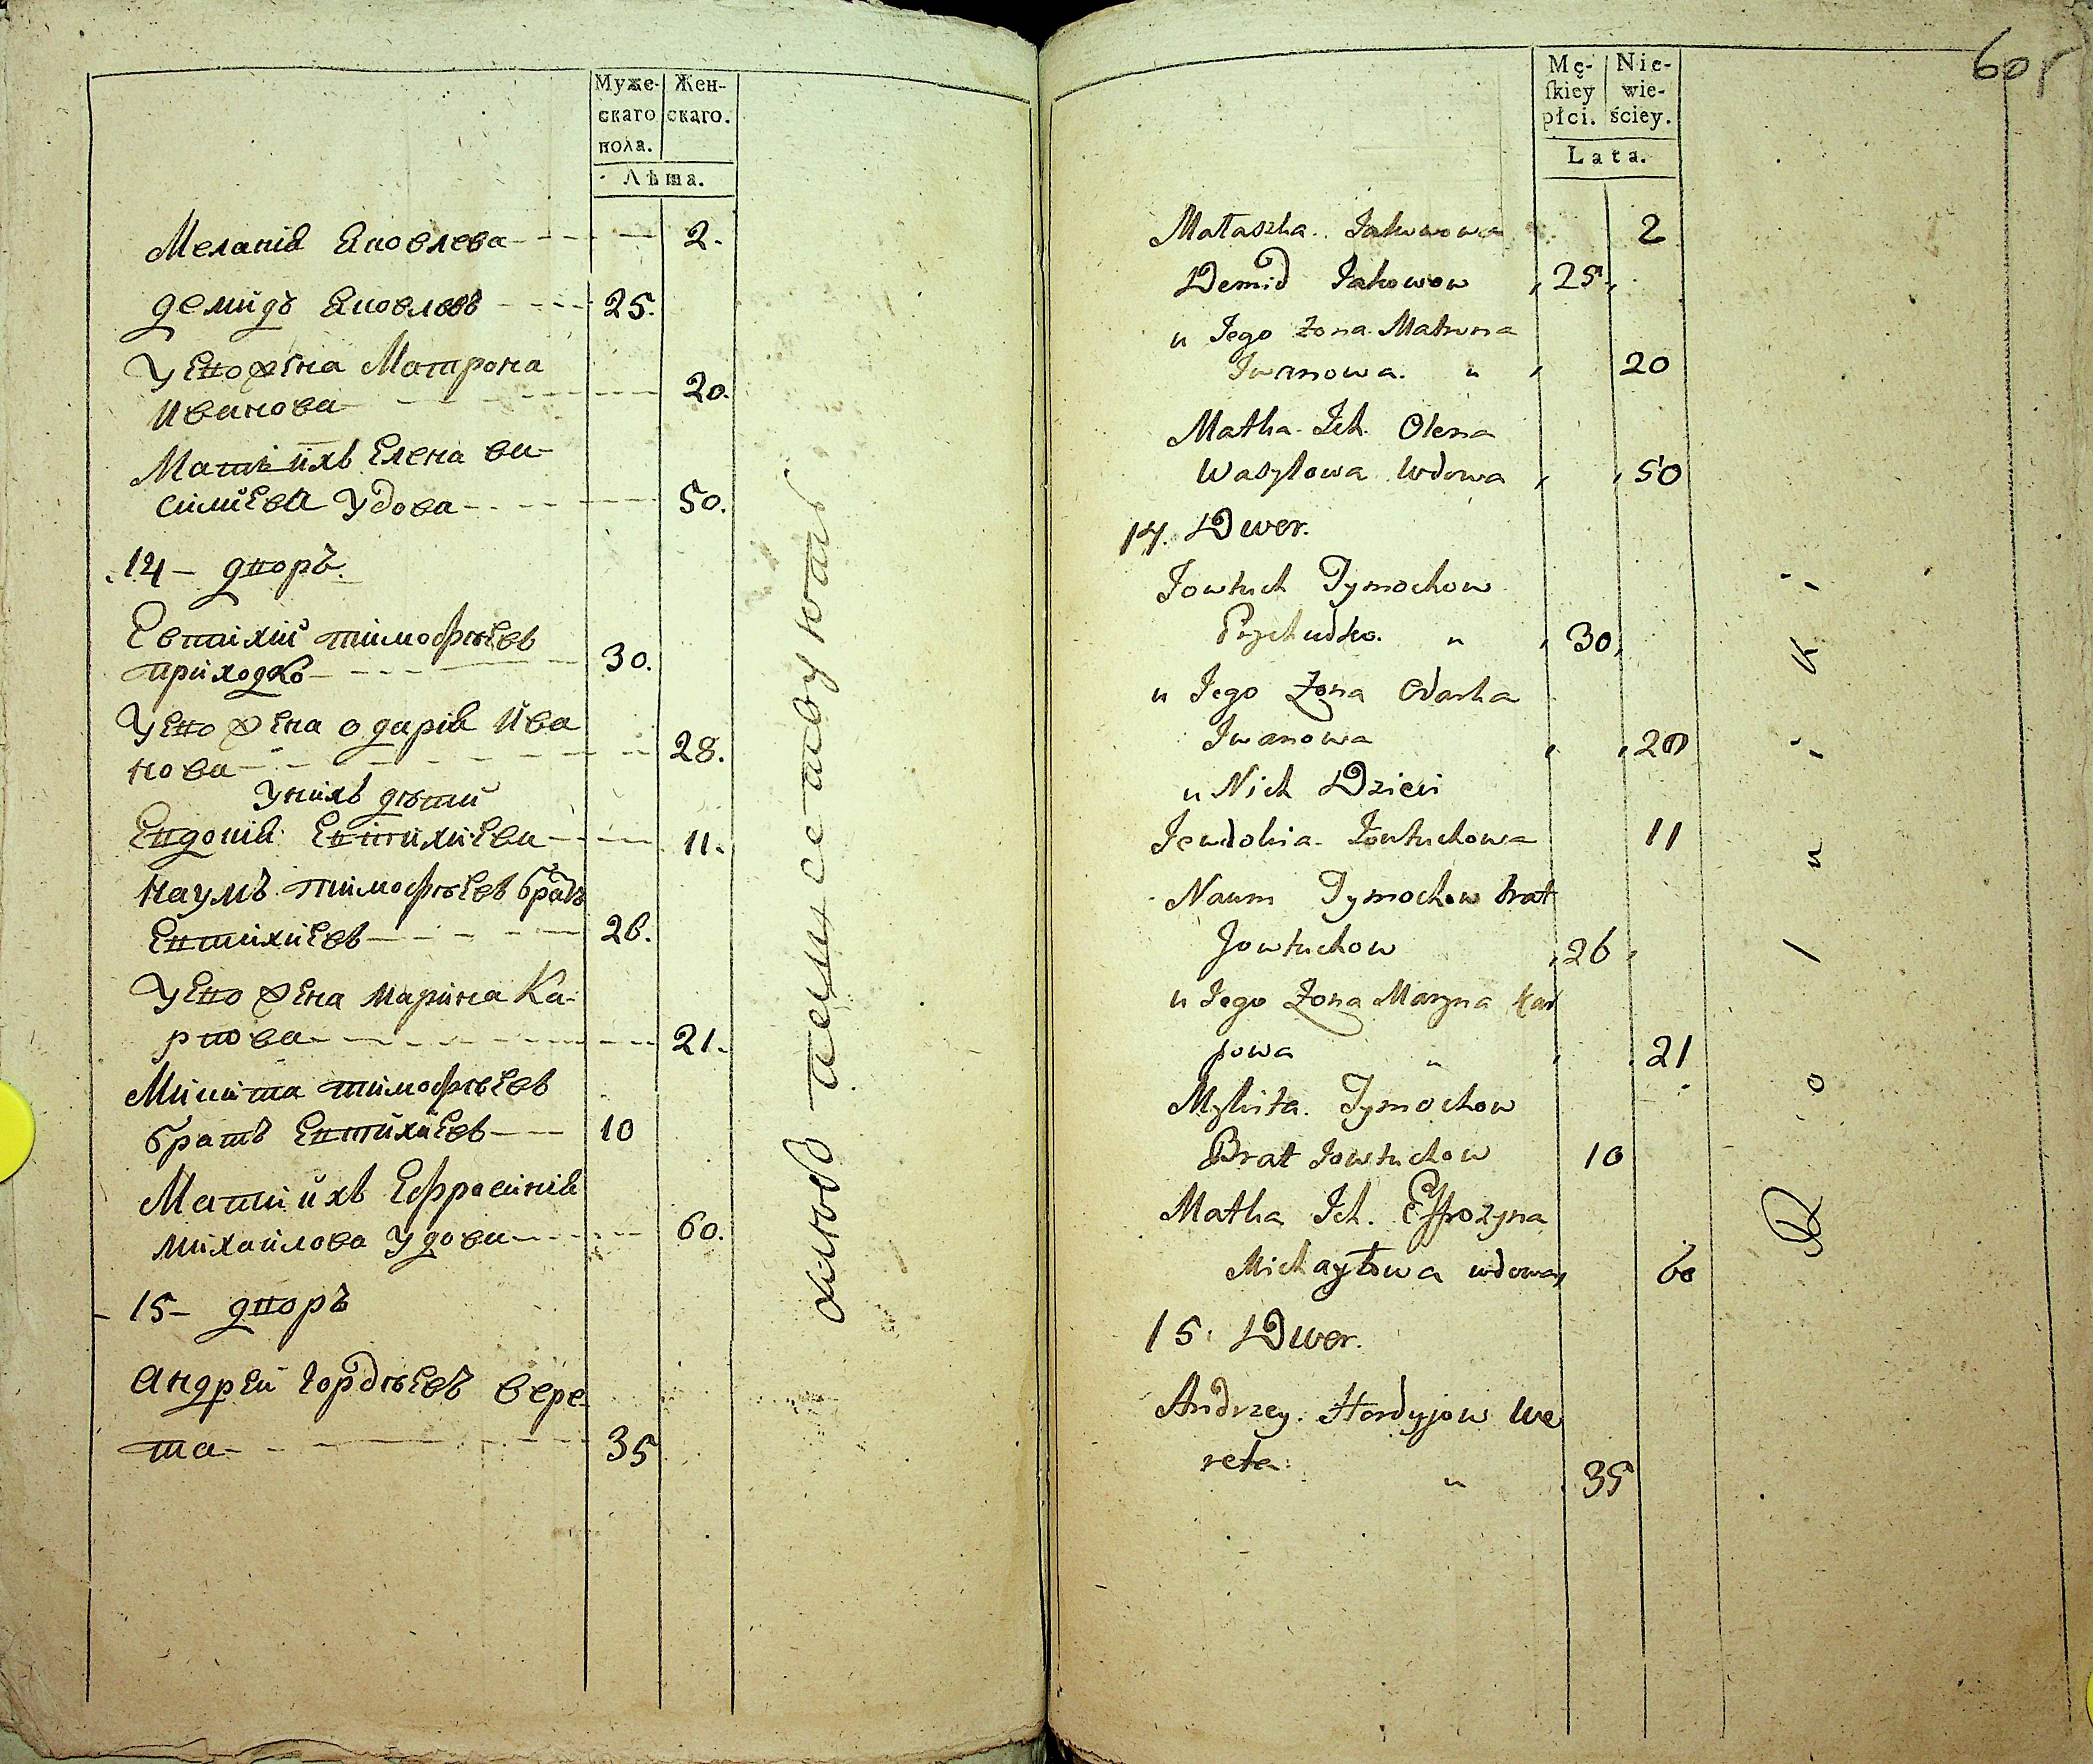 Муже-
скаго
пола.
Жен-
скаго.
Лѣта.
Меланія Яковлева 2.
Демидъ Яковлевъ 25.
У его жена Матрона
Иванова 20.
Мать ихъ Елена Ва-
силиева Удова 50.
14 - дворъ.
Евтихій Тимофѣевъ
Приходко 30.
У его жена Одарія Ива
нова 28.
У нихъ дѣти
Евдокія Евтихиева 11.
Наумъ Тимофѣевъ братъ
Евтихиевъ 26.
У его жена Марина Ка-
рпова 21.
Микита Тимофѣевъ
братъ Евтихиевъ 10
Мати ихъ Ефросинія
Михайлова Удова 60.
15 - дворъ
Андрей Гордѣевъ Вере
та 35
жителствуютъ
60r
Mę-
ſkiey
płci.
Nie-
wie-
ściey.
Lata.
Małaszka Jakowowa 2
Demid Jakowow 25
u Jego Żona Matrona
Iwanowa 20
Matka Ich Olena
Wasylowa Wdowa 50
14. Dwor.
Jowtuch Tymochow
Prychudko 30
u Jego Żona Odarka
Iwanowa 28
u Nich Dzieci
Jewdokia Jowtuchowa 11
Naum Tymochow brat
Jowtuchow 26
u Jego Żona Maryna Kar
powa 21
Mykita Tymochow
Brat Jowtuchow 10
Matka Ich Effrozyna
Michayłowa wdowa 60
15. Dwor.
Andrzey Hordyjow We
reta 35
Rolniki